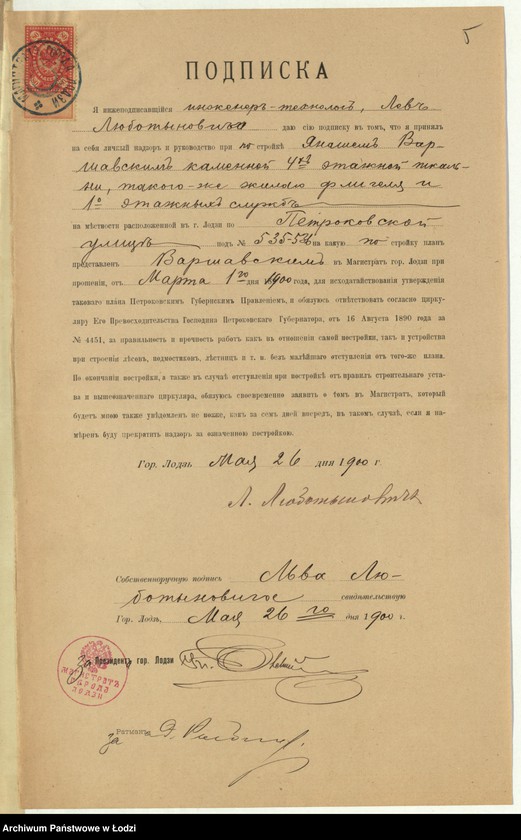 5
ПОДПИСКА
Я нижеподписавшійся инженеръ-технологъ, Левъ
Люботыновичъ даю сію подписку въ томъ, что я принялъ
на себя личный надзоръ и руководство при по стройкѣ Янашемъ Вар-
шавскимъ каменной 4хъ этажной ткаль-
ни, такого-же жилого флигеля и
1о этажныхъ службъ
на мѣстности расположенной въ г. Лодзи по Петроковской
улицѣ подъ № 535-536 на какую по стройку планъ
представленъ Варшавскимъ въ Магистратъ гор. Лодзи при
прошеніи, отъ Марта 1го дня 1900 года, для исходатайствованія утвержденія
таковаго плана Петроковскимъ Губернскимъ Правленіемъ, и обязуюсь отвѣтствовать согласно цирку-
ляру Его Превосходительства Господина Петроковскаго Губернатора, отъ 16 Августа 1890 года за
№ 4451, за правильность и прочность работъ какъ въ отношеніи самой постройки, такъ и устройства
при строеніи лѣсовъ, подмостковъ, лѣстницъ и т. п. безъ малѣйшаго отступленія отъ того-же плана.
По окончаніи постройки, а также въ случаѣ отступленія при постройкѣ отъ правилъ строительнаго уста-
ва и вышеозначеннаго циркуляра, обязуюсь своевременно заявить о томъ въ Магистратъ, который
будетъ мною также увѣдомленъ не позже, какъ за семь дней впередъ, въ такомъ случаѣ, если я на-
мѣренъ буду прекратить надзоръ за означенною постройкою.
Гор. Лодзь, Мая 26 дня 1900 г.
Л. Люботыновичъ
Собственноручную подпись Льва Лю-
ботыновича свидѣтельствую
Гор. Лодзь, Мая 26 го дня 1900 г.
За Президентъ гор. Лодзи
МАГИСТРАТЪ
ГОРОДА
ЛОДЗИ
за Ратманъ
Archiwum Państwowe w Łodzi